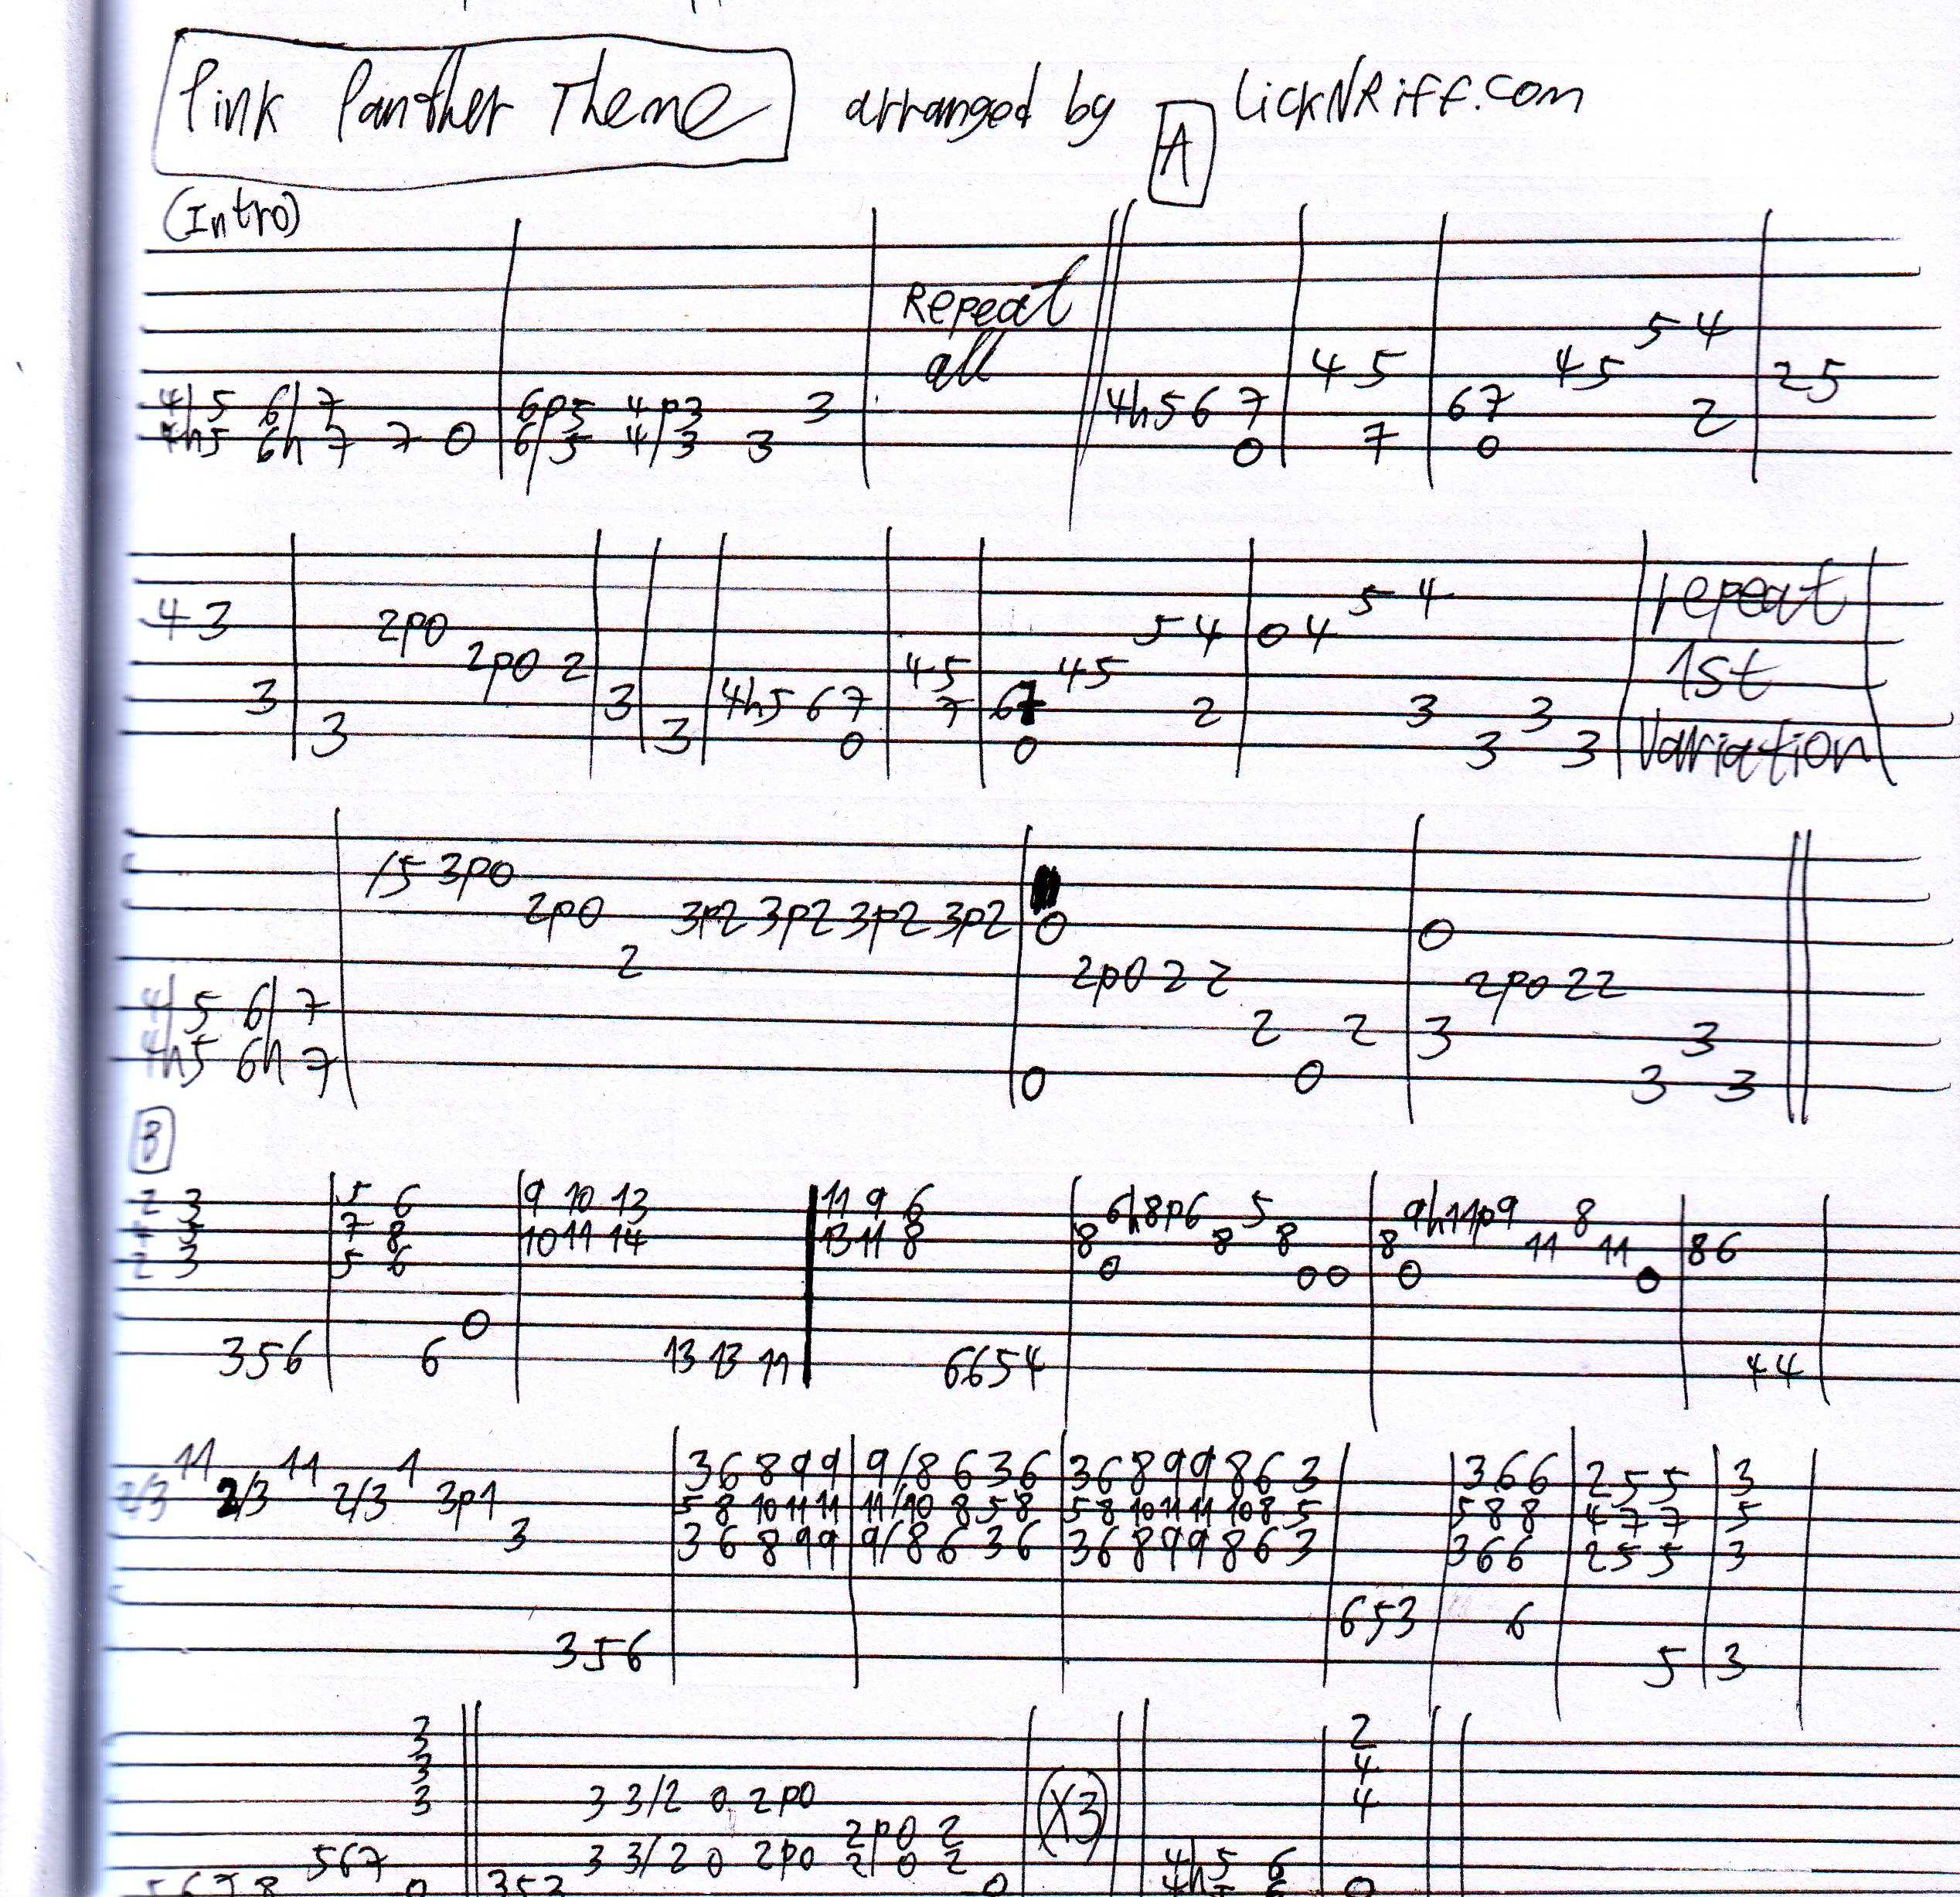 Pink Panther Theme arranged by LickNRiff.com
A
(Intro)
Repeat
all
5 4
4 5 4 5 2 5
4/5 6/7 6p5 4p3 3 4h5 6 7 6 7 2
4h5 6h7 7 0 6/5 4/3 3 0 7 0
5 4 repeat
4 3 2p0 5 4 0 4
2p0 2 4 5 4 5 1st
3 3 4h5 6 7 7 6 7 2 3 3
3 3 0 0 3 3 Variation
/5 3p0
2p0 3p2 3p2 3p2 3p2 0 0
2 2p0 2 2 2p0 2 2
4/5 6/7 2 2 3 3
4h5 6h7 0 0 3 3
B
2 3 5 6 9 10 13 11 9 6 6h8p6 5 9h11p9 8
4 5 7 8 10 11 14 13 11 8 8 8 8 8 11 11 8 6
2 3 5 6 0 0 0 0 0
0
3 5 6 6 13 13 11 6 6 5 4 4 4
11 11 1 3 6 8 9 9 9/8 6 3 6 3 6 8 9 9 8 6 3 3 6 6 2 5 5 3
2/3 2/3 2/3 3p1 5 8 10 11 11 11/10 8 5 8 5 8 10 11 11 10 8 5 5 8 8 4 7 7 5
3 3 6 8 9 9 9/8 6 3 6 3 6 8 9 9 8 6 3 3 6 6 2 5 5 3
6 5 3 6
3 5 6 5 3
3 2
3 4
3 3 3/2 0 2p0 (X3) 4
2p0 2
5 6 7 3 3/2 0 2p0 2p0 2 4/5 6
5 6 7 8 0 3 5 3 0 4h5 6 0